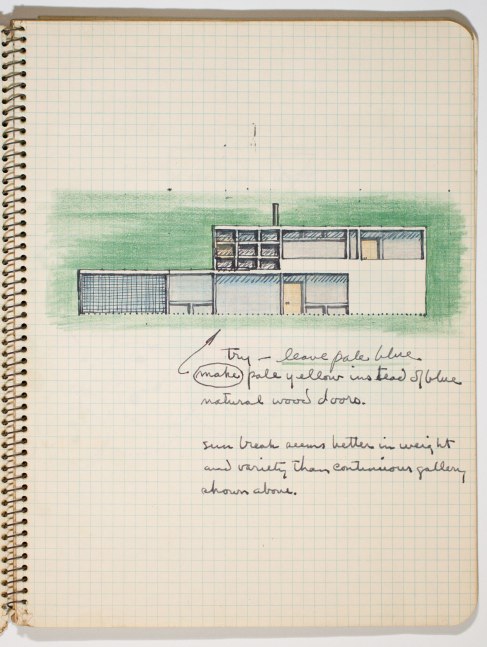 try – leave pale blue
make pale yellow instead of blue
natural wood doors.
sun break seems better in weight
and variety than continuous gallery
shown above.